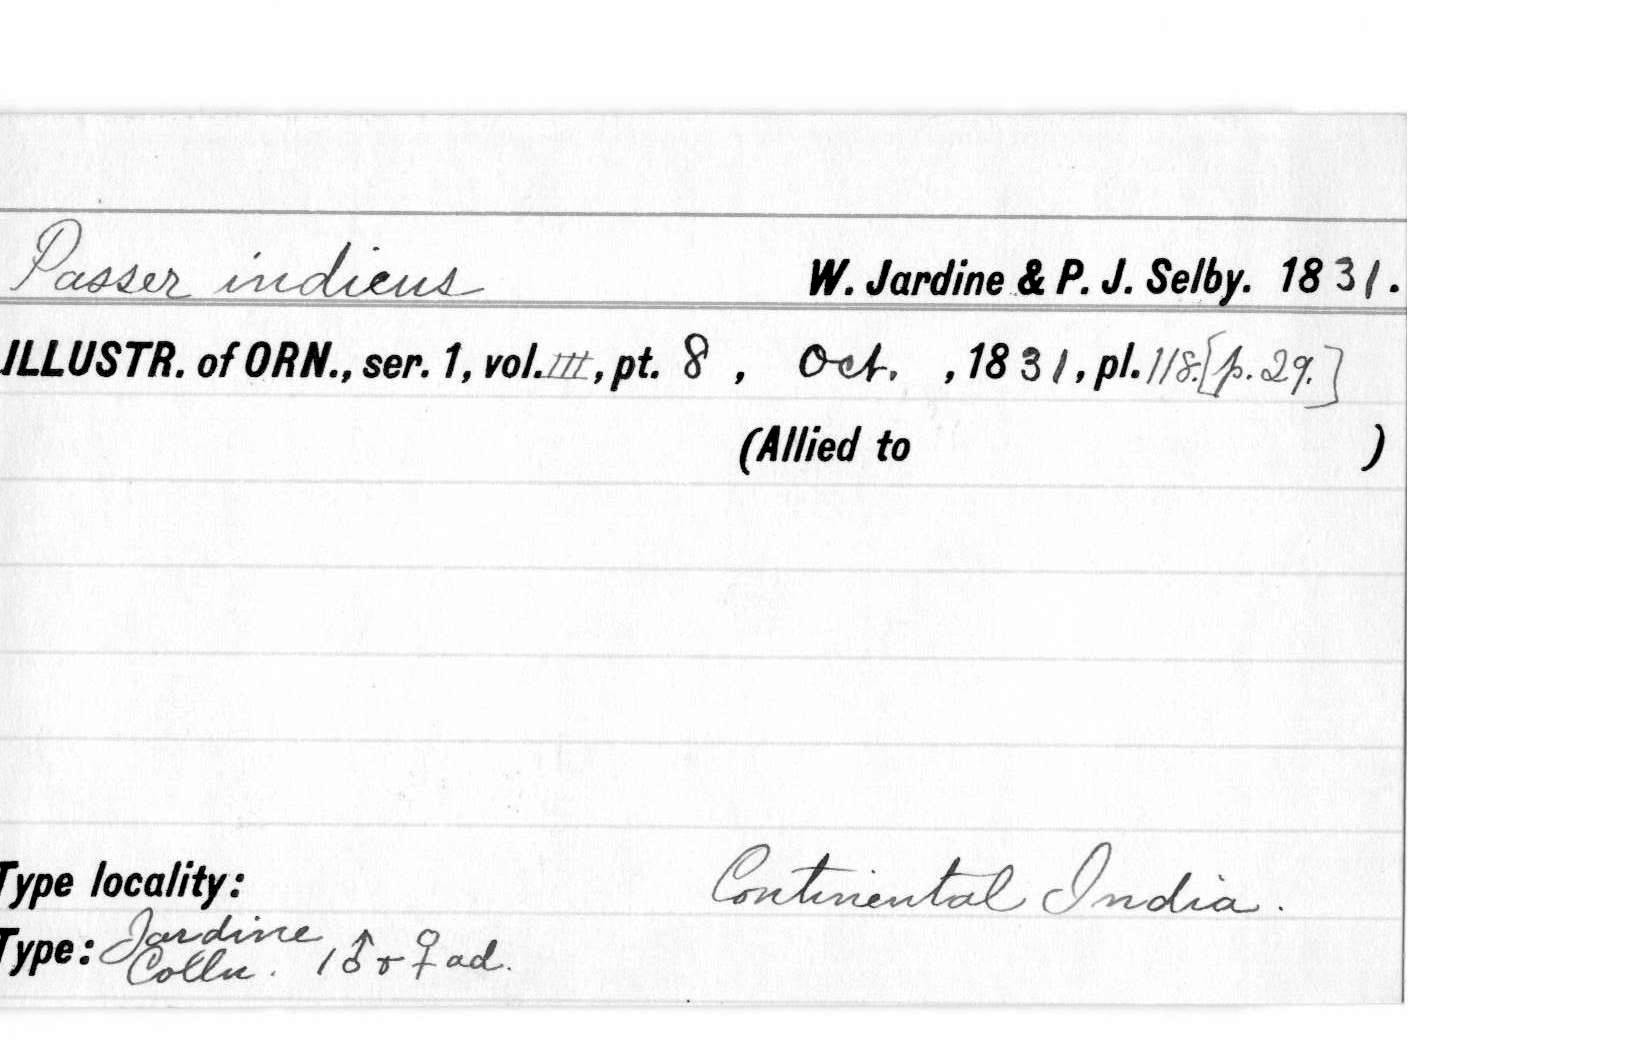 Passer indicus W. Jardine & P. J. Selby. 1831.
ILLUSTR. of ORN., ser. 1, vol. III, pt. 8, Oct., 1831, pl. 118. [p. 29.]
(Allied to )
Type locality: Continental India.
Type: Jardine Colln. 1♂ + ♀ ad.